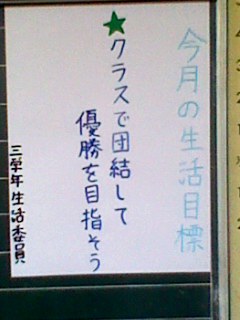 今月の生活目標
★クラスで団結して
優勝を目指そう
三学年生活委員